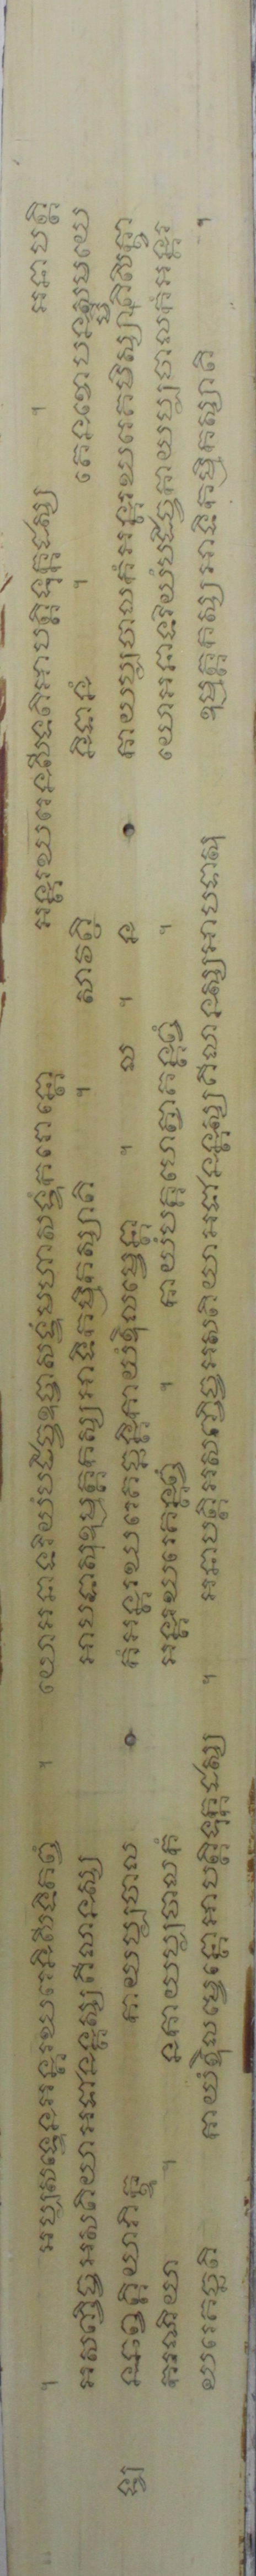 ។ អប្បសទ្ទេនអន្តរឃរេនិសីទិតព្វំ ។ យោអនាទរិយំបដិច្ចឧច្ចាសទ្ទំមហាសទ្ទំករោន្តោ អន្តរឃរេនិសីទតិអាបត្តិទុក្កដស្ស ។ អនាបត្តិ
អសញ្ចិច្ចអសតិយាអជានន្តស្សគិលានស្ស អាបទាសុឧម្មត្តកស្សអាទិកម្មិកស្សាតិ ។ សាវត្ថិ និទានំ ។ តេនខោបនសមយេ
ឆព្វគ្គិយាភិក្ខូ កាយប្បចាល កំអន្តរឃរេគច្ឆន្តិកាយំឱលម្ពេន្តា ។ ល ។ ន កាយប្បចាលកំអន្តរឃរេគមិស្សាមីតិសិក្ខា
ករណីយា ។ នកាយប្បចាលកំ អន្តរឃរេគន្តព្វំ ។ កាយំបគ្គហេត្វាគន្តព្វំ ។ យោអនាទរិយំបដិច្ចកាយប្បចាលកំអន្តរ
ឃរេគច្ឆតិ កាយំឱលម្ពេន្តោអាបត្តិទុក្កដស្ស ។ អនាបត្តិអសញ្ចិច្ចអសតិយាអជានន្តស្សគិលានស្សអាបទាសុ ឧម្មត្តកស្សអាទិកម្មិកស្សាតិ ។